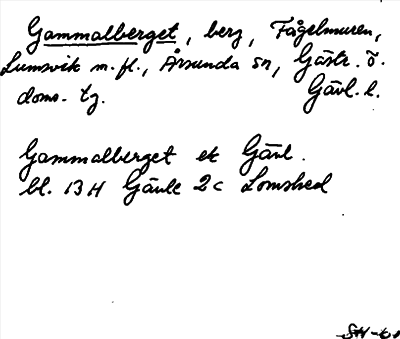 Gammalberget, berg, Fågelmuren,
Lumsvik m.fl., Årsunda sn, Gästr. ö.
doms. tg. Gävl. l.
Gammalberget ek Gävl.
bl. 13H Gävle 2c Lomshed